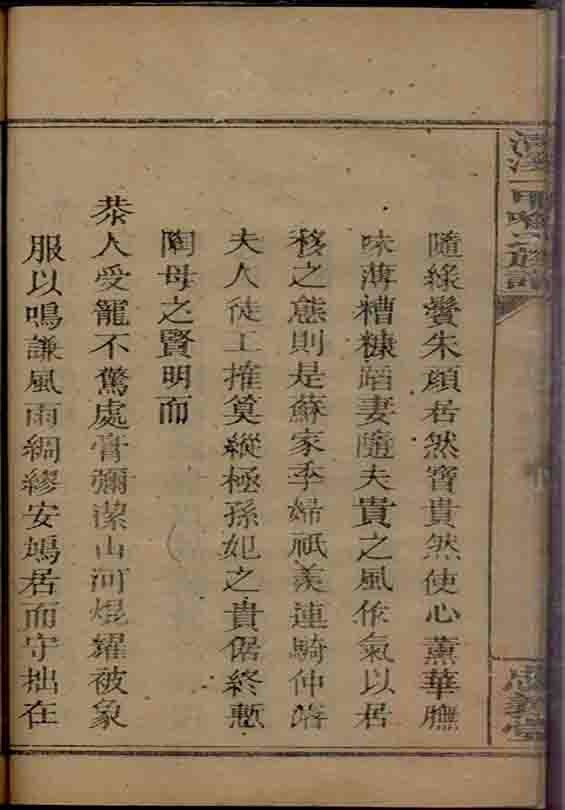 隨綠鬢朱顏居然寶貴然使心薰華膴
味薄糟糠蹈妻隨夫貴之風作氣以居
移之態則是蘇家季婦祇羨連騎仲
夫人徒工摧莫縱極孫妃之貴倨終慙
陶母之賢明而
恭人受寵不驚處膏彌潔山河焜耀被象
服以鳴謙風雨綢繆安鳩居而守拙在